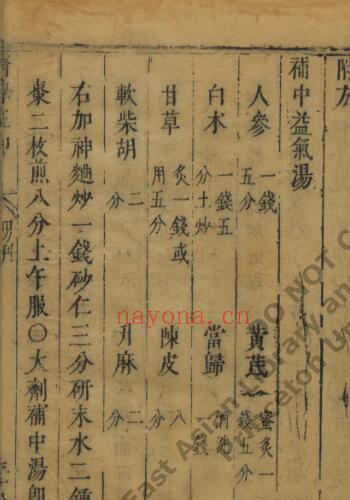 附方
補中益氣湯
人參 一錢五分 黃芪 蜜炙一錢五分
白术 一錢五分土炒 當歸 酒洗一錢
甘草 炙一錢或用五分 陳皮 八分
軟柴胡 二分 升麻 二分
右加神麯炒一錢砂仁三分研末水二鍾
棗二枚煎八分上午服○大劑補中湯即
nayona.cn
DO NOT C
East Asian Library and
Princeton Un